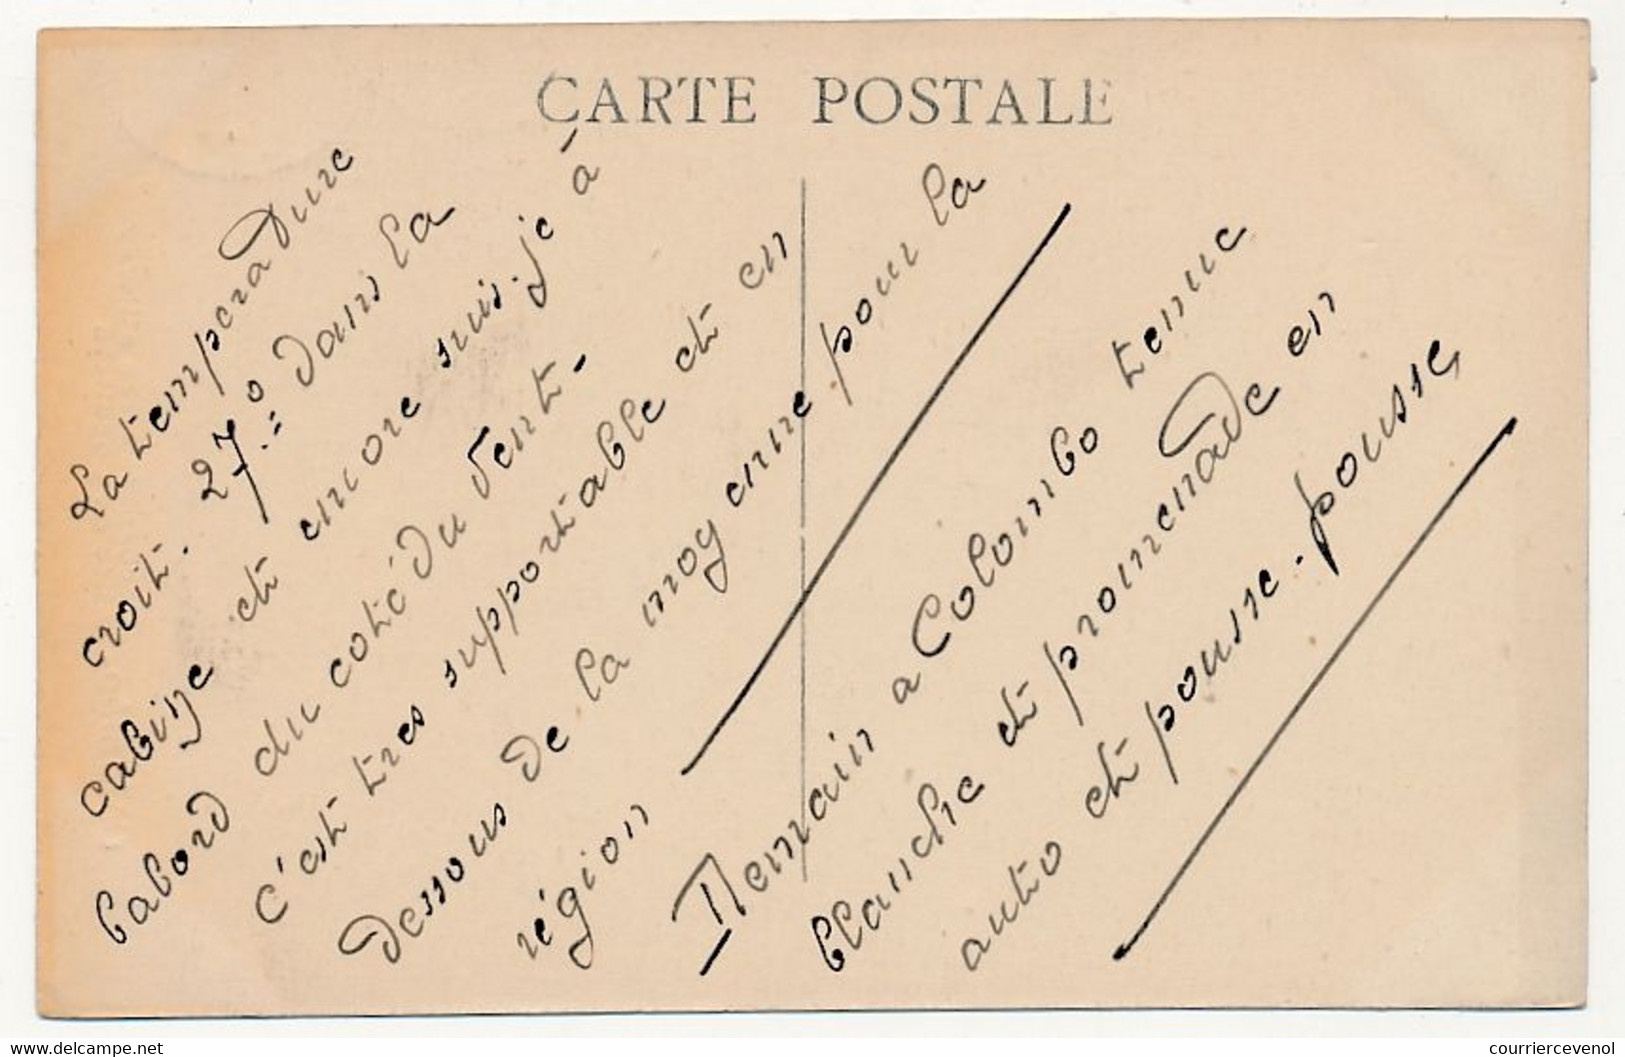 CARTE POSTALE
La température
croit. 27° dans la
cabine et encore suis-je à
babord du coté du vent-
c'est tres supportable et en
dessous de la moyenne pour la
région
Demain a Colombo tenue
blanche et promenade en
auto et pousse-pousse
delcampe.net
courriercevenol